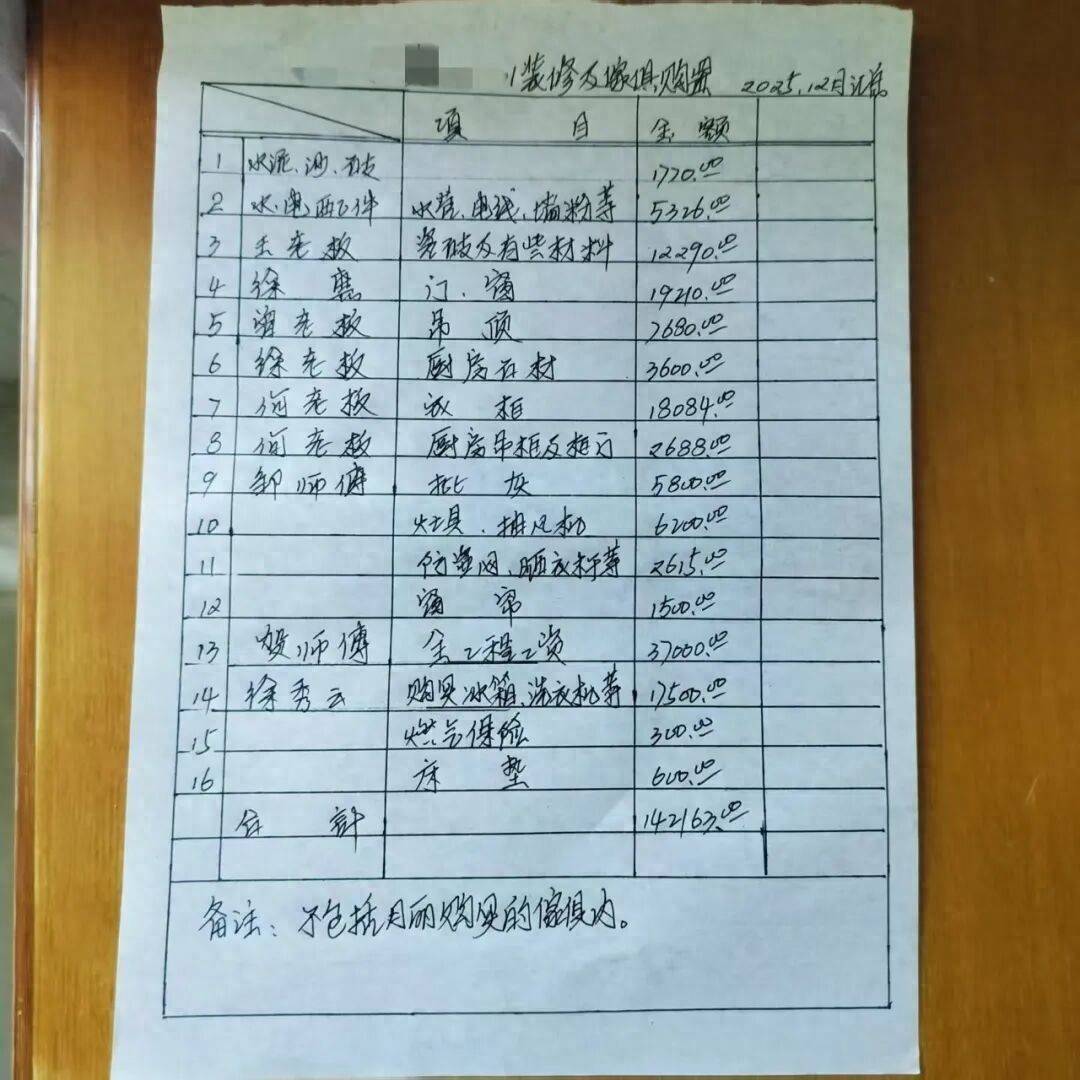 装修及傢俱购置 2025.12月汇总
项目 金额
1 水泥、沙、砖 1720.00
2 水、电配件 水管、电线、墙粉等 5326.00
3 王老板 瓷砖及有些材料 12290.00
4 徐 门、窗 19210.00
5 老板 吊顶 7680.00
6 徐老板 厨房石材 3600.00
7 何老板 衣柜 18084.00
8 何老板 厨房吊柜及柜门 2688.00
9 师傅 批灰 5800.00
10 灶具、排风机 6200.00
11 防盗网、晒衣杆等 2615.00
12 窗帘 1500.00
13 师傅 全工程工资 37000.00
14 徐秀云 购买冰箱、洗衣机等 17500.00
15 燃气保险 300.00
16 床垫 600.00
合计 142163.00
备注：不包括月丽购买的傢俱内。